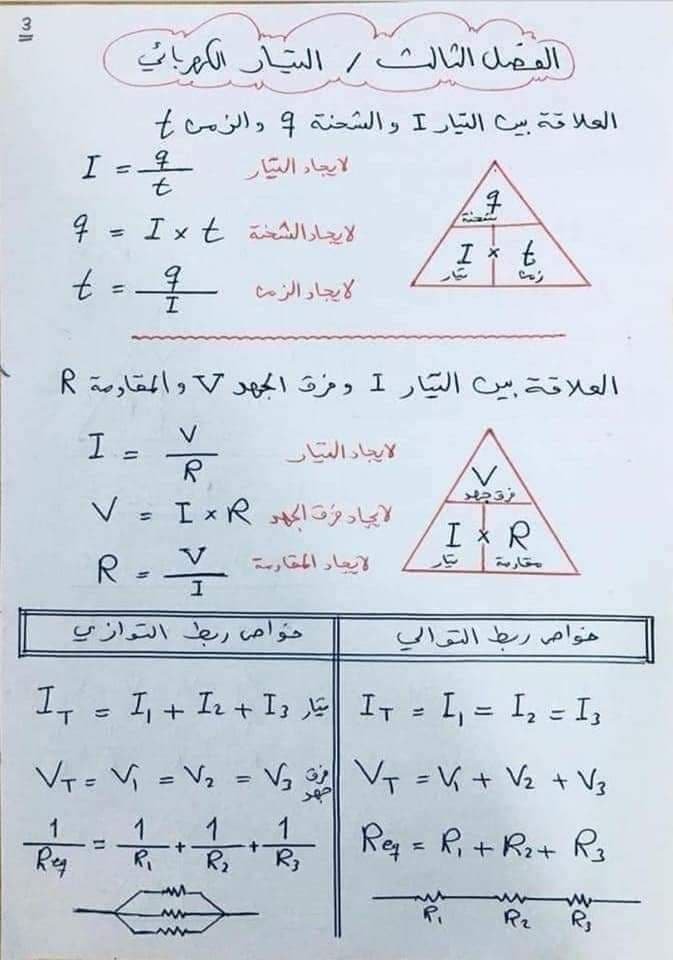 3
الفصل الثالث / التيار الكهربائي
العلاقة بين التيار I والشحنة q والزمن t
I = q/t لايجاد التيار
q = I × t لايجاد الشحنة
t = q/I لايجاد الزمن
q
شحنة
I × t
تيار زمن
العلاقة بين التيار I وفرق الجهد V والمقاومة R
I = V/R لايجاد التيار
V = I × R لايجاد فرق الجهد
R = V/I لايجاد المقاومة
V
فرق جهد
I × R
تيار مقاومة
خواص ربط التوالي
I_T = I₁ = I₂ = I₃
V_T = V₁ + V₂ + V₃
Req = R₁ + R₂ + R₃
R₁ R₂ R₃
خواص ربط التوازي
I_T = I₁ + I₂ + I₃ تيار
V_T = V₁ = V₂ = V₃ فرق جهد
1/Req = 1/R₁ + 1/R₂ + 1/R₃